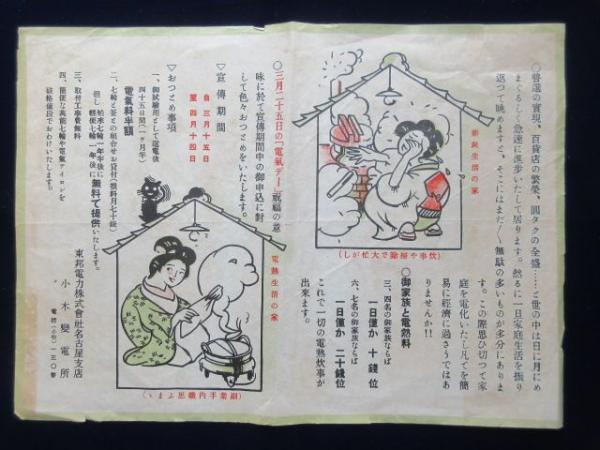 ◯普選の實現、百貨店の繁榮、圓タクの全盛……と世の中は日に月にめ
まぐるしく急速に進步いたして居ります。然るに一旦家庭生活を振り
返つて眺めますと、そこにはまだ〳〵無駄の多いものが多分にありま
す。この際思ひ切つて家
庭を電化いたし凡てを簡
易に經濟に過さうではあ
りませんか!!
薪炭生活の家
(炊事や掃除で大忙がし)
◯御家族と電熱料
三、四名の御家族ならば
一日僅か十錢位
六、七名の御家族ならば
一日僅か二十錢位
これで一切の電熱炊事が
出來ます。
◯三月二十五日の「電氣デー」祝福の意
味に於て宣傳期間中の御申込に對
して色々おつとめをいたします。
▽宣傳期間
自三月十五日
至四月十四日
▽おつとめ事項
一、御試驗用として送電後
四十五日間(一ケ月半)
電氣料半額
二、七輪と釜との組合せお貸付(損料月七十錢)
但し
七輪一年半後に
輕便七輪一年後に
無料で提供いたします。
三、取付工事費無料
四、簡便な萬能七輪や電氣アイロンを
破格値段でおわけいたします。
電熱生活の家
(副業手內職思ふまゝ)
東邦電力株式會社名古屋支店
小木變電所
電話(小牧)一三〇番